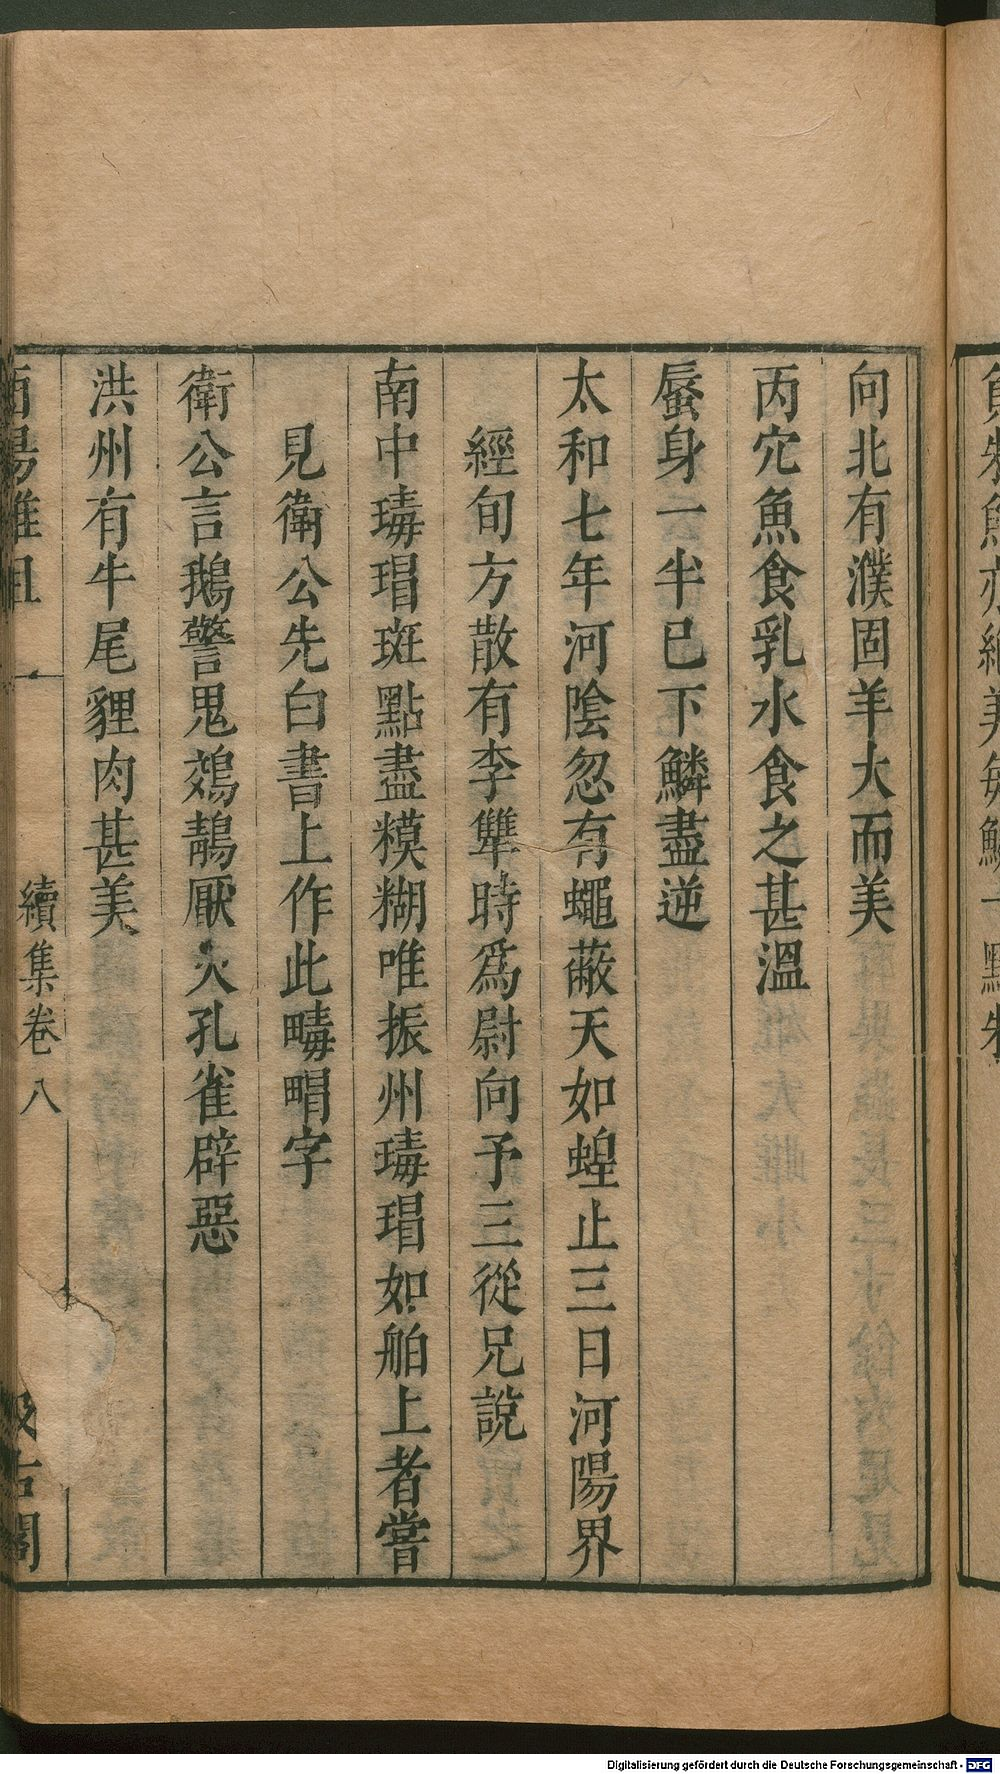 向北有濮固羊大而美
丙穴魚食乳水食之甚溫
蜃身一半已下鱗盡逆
太和七年河陰忽有蠅蔽天如蝗止三日河陽界
經旬方散有李犨時爲尉向予三從兄說
南中瑇瑁斑點盡糢糊唯振州瑇瑁如舶上者嘗
見衛公先白書上作此㻇㻇字
衛公言鵝警鬼鵁鶄厭火孔雀辟惡
洪州有牛尾貍肉甚美
酉陽雜俎 續集卷八 汲古閣
Digitalisierung gefördert durch die Deutsche Forschungsgemeinschaft - DFG